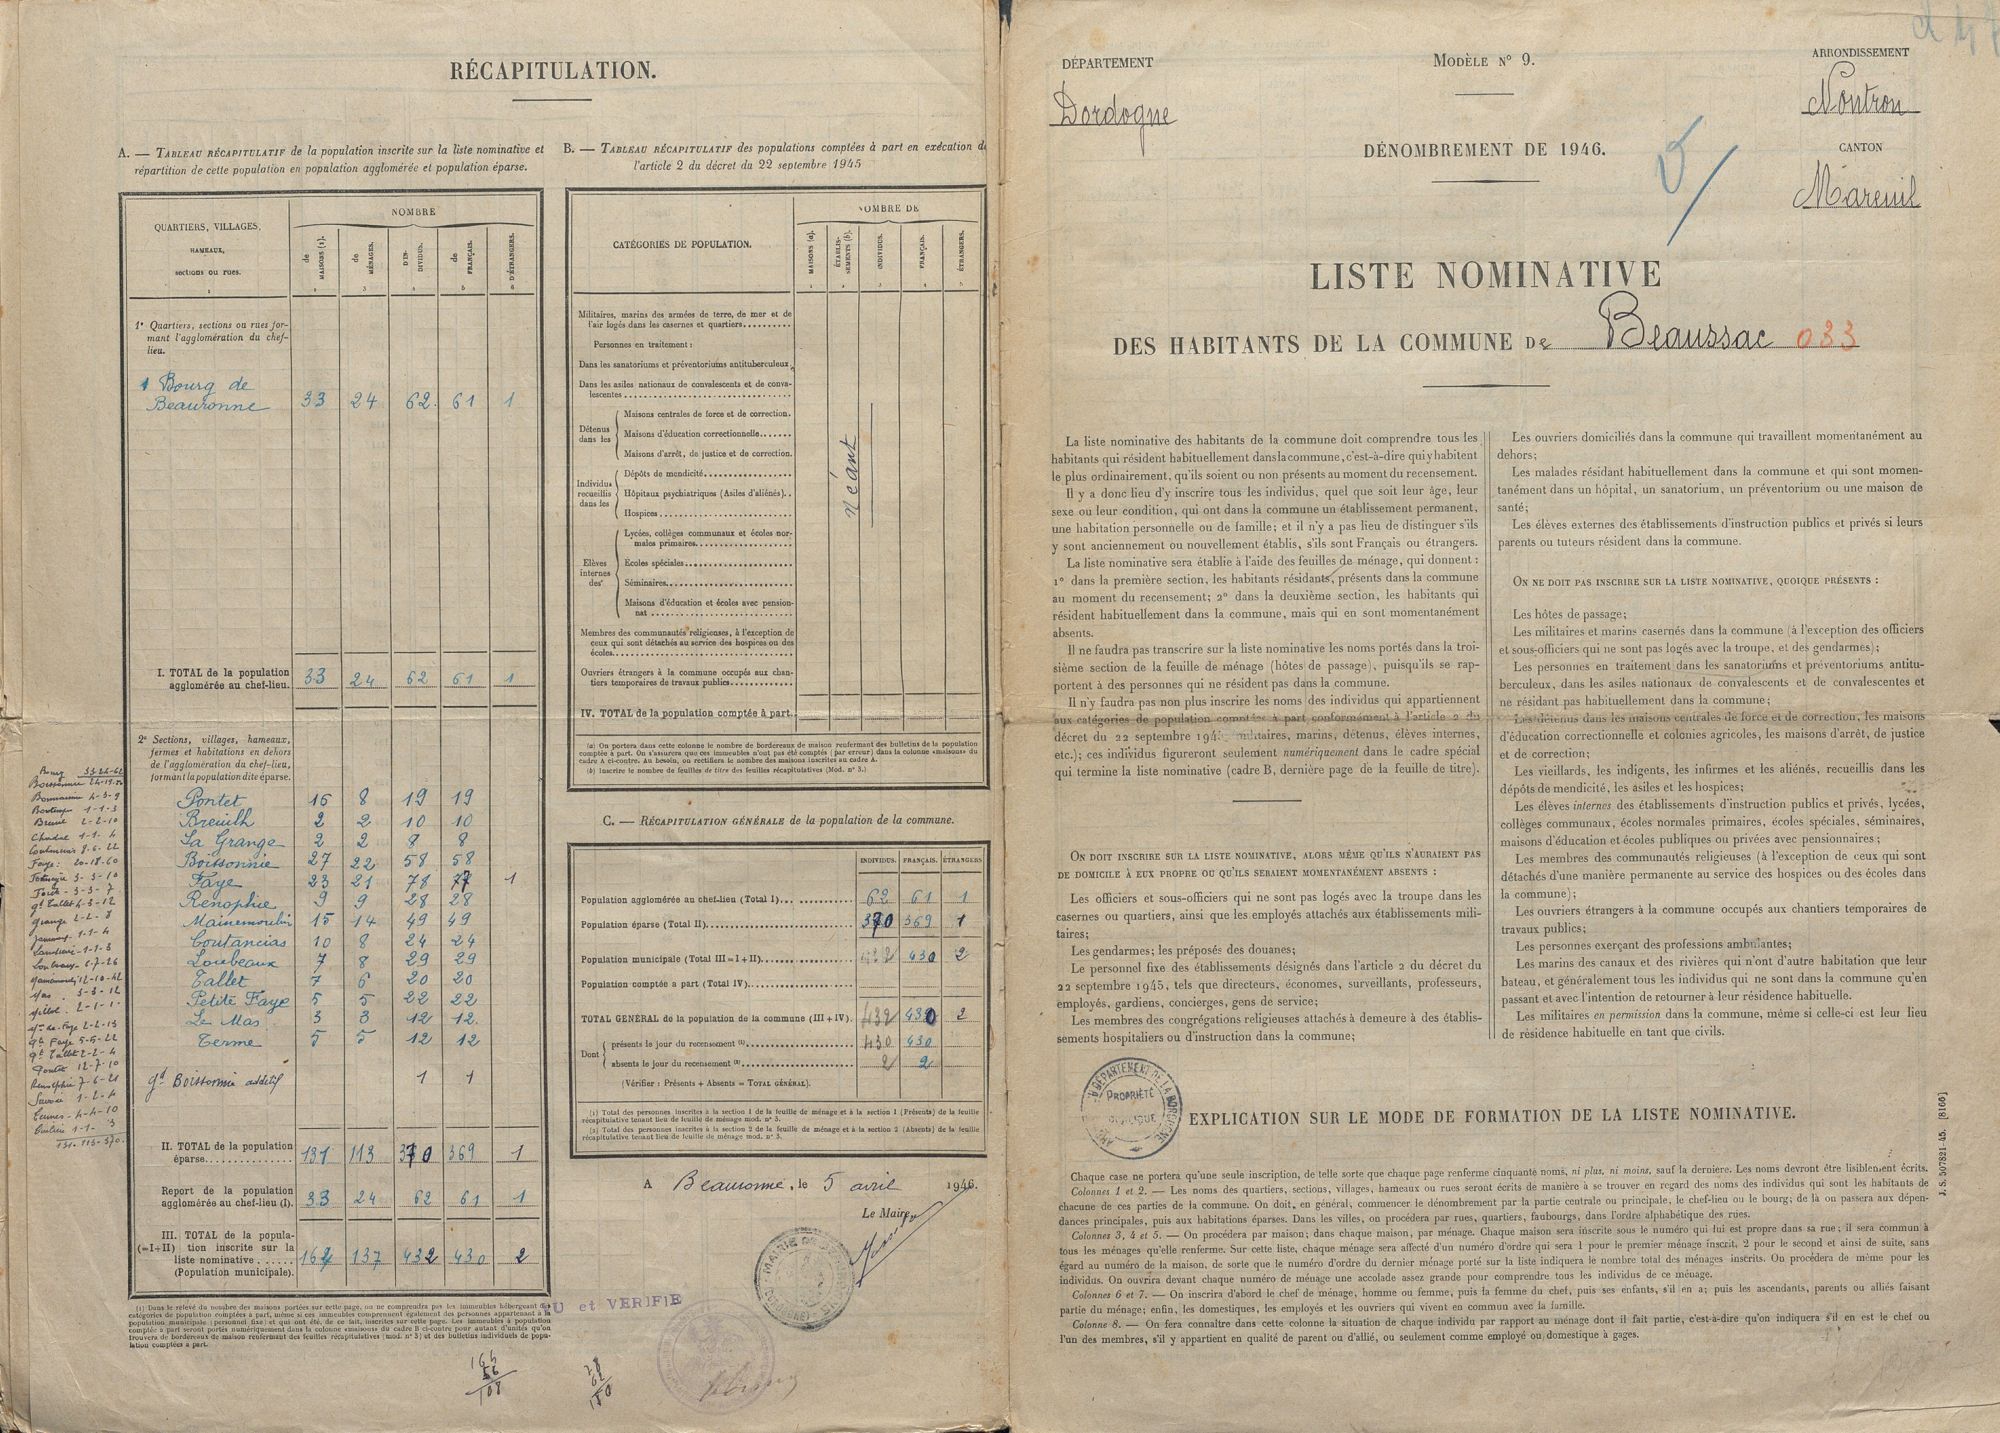 RÉCAPITULATION.
A. — TABLEAU RÉCAPITULATIF de la population inscrite sur la liste nominative et
répartition de cette population en population agglomérée et population éparse.
QUARTIERS, VILLAGES,
HAMEAUX,
sections ou rues.
NOMBRE
de MAISONS (1).
de MÉNAGES.
D'IN-DIVIDUS.
de FRANÇAIS.
D'ÉTRANGERS.
1 2 3 4 5 6
1° Quartiers, sections ou rues for-
mant l'agglomération du chef-
lieu.
Bourg de
Beauronne 33 24 62 61 1
I. TOTAL de la population
agglomérée au chef-lieu. 33 24 62 61 1
2° Sections, villages, hameaux,
fermes et habitations en dehors
de l'agglomération du chef-lieu,
formant la population dite éparse.
Pontet 16 8 19 19
Breuilh 2 2 10 10
La Grange 2 2 8 8
Boissonnie 27 22 58 58
Faye 23 21 78 77 1
Renophie 9 9 28 28
Mainemoulin 15 14 49 49
Coutancias 10 8 24 24
Loubeaux 7 8 29 29
Tallet 7 6 20 20
Petite Faye 5 5 22 22
Le Mas 3 3 12 12
Terme 5 5 12 12
gd Boissonnie additif 1 1
II. TOTAL de la population
éparse 131 113 370 369 1
Report de la population
agglomérée au chef-lieu (I). 33 24 62 61 1
III. TOTAL de la popula-
(=I+II) tion inscrite sur la
liste nominative
(Population municipale). 164 137 432 430 2
(1) Dans le relevé du nombre des maisons portées sur cette page, on ne comprendra pas les immeubles hébergeant des
catégories de population comptées à part, même si ces immeubles comprennent également des personnes appartenant à la
population municipale (personnel fixe) et qui ont été, de ce fait, inscrites sur cette page. Les immeubles à population
comptée à part seront portés numériquement dans la colonne «maisons» du cadre B ci-contre pour autant d'unités qu'on
trouvera de bordereaux de maison renfermant des feuilles récapitulatives (mod. n° 3) et des bulletins individuels de popu-
lation comptées à part.
Bourg 33-24-62
Faye: 20-18-60
Grange 2-2-8
Pontet 12-7-10
Savoie 1-2-4
Termes-4-4-10
131-113-370
B. — TABLEAU RÉCAPITULATIF des populations comptées à part en exécution de
l'article 2 du décret du 22 septembre 1945
CATÉGORIES DE POPULATION.
NOMBRE DE
MAISONS (a).
ÉTABLIS-SEMENTS (b).
INDIVIDUS.
FRANÇAIS.
ÉTRANGERS.
Militaires, marins des armées de terre, de mer et de
l'air logés dans les casernes et quartiers
Personnes en traitement :
Dans les sanatoriums et préventoriums antituberculeux.
Dans les asiles nationaux de convalescents et de conva-
lescentes
Détenus dans les
Maisons centrales de force et de correction.
Maisons d'éducation correctionnelle
Maisons d'arrêt, de justice et de correction.
Individus recueillis dans les
Dépôts de mendicité
Hôpitaux psychiatriques (Asiles d'aliénés)
Hospices
Elèves internes des
Lycées, collèges communaux et écoles nor-
males primaires
Ecoles spéciales
Séminaires
Maisons d'éducation et écoles avec pension-
nat
Membres des communautés religieuses, à l'exception de
ceux qui sont détachés au service des hospices ou des
écoles
Ouvriers étrangers à la commune occupés aux chan-
tiers temporaires de travaux publics
IV. TOTAL de la population comptée à part.
néant
(a) On portera dans cette colonne le nombre de bordereaux de maison renfermant des bulletins de la population
comptée à part. On s'assurera que ces immeubles n'ont pas été comptés (par erreur) dans la colonne «maisons» du
cadre A ci-contre. Au besoin, on rectifiera le nombre des maisons inscrites au cadre A.
(b) Inscrire le nombre de feuilles de titre des feuilles récapitulatives (Mod. n° 3.)
C. — RÉCAPITULATION GÉNÉRALE de la population de la commune.
INDIVIDUS. FRANÇAIS. ÉTRANGERS
Population agglomérée au chef-lieu (Total I) 62 61 1
Population éparse (Total II) 370 369 1
Population municipale (Total III = I + II) 432 430 2
Population comptée à part (Total IV)
TOTAL GÉNÉRAL de la population de la commune (III + IV). 432 430 2
Dont
présents le jour du recensement (1) 430 430
absents le jour du recensement (2) 2 2
(Vérifier : Présents + Absents = TOTAL GÉNÉRAL).
(1) Total des personnes inscrites à la section 1 de la feuille de ménage et à la section 1 (Présents) de la feuille
récapitulative tenant lieu de feuille de ménage mod. n° 3.
(2) Total des personnes inscrites à la section 2 de la feuille de ménage et à la section 2 (Absents) de la feuille
récapitulative tenant lieu de feuille de ménage mod. n° 3.
A Beauronne, le 5 avril 1946.
Le Maire,
VU et VERIFIE
DÉPARTEMENT
Dordogne
MODÈLE N° 9.
DÉNOMBREMENT DE 1946.
ARRONDISSEMENT
Nontron
CANTON
Mareuil
LISTE NOMINATIVE
DES HABITANTS DE LA COMMUNE DE Beaussac 033
La liste nominative des habitants de la commune doit comprendre tous les
habitants qui résident habituellement dans la commune, c'est-à-dire qui y habitent
le plus ordinairement, qu'ils soient ou non présents au moment du recensement.
Il y a donc lieu d'y inscrire tous les individus, quel que soit leur âge, leur
sexe ou leur condition, qui ont dans la commune un établissement permanent,
une habitation personnelle ou de famille; et il n'y a pas lieu de distinguer s'ils
y sont anciennement ou nouvellement établis, s'ils sont Français ou étrangers.
La liste nominative sera établie à l'aide des feuilles de ménage, qui donnent :
1° dans la première section, les habitants résidants, présents dans la commune
au moment du recensement; 2° dans la deuxième section, les habitants qui
résident habituellement dans la commune, mais qui en sont momentanément
absents.
Il ne faudra pas transcrire sur la liste nominative les noms portés dans la troi-
sième section de la feuille de ménage (hôtes de passage), puisqu'ils se rap-
portent à des personnes qui ne résident pas dans la commune.
Il n'y faudra pas non plus inscrire les noms des individus qui appartiennent
aux catégories de population comptées à part conformément à l'article 2 du
décret du 22 septembre 1945 (militaires, marins, détenus, élèves internes,
etc.); ces individus figureront seulement numériquement dans le cadre spécial
qui termine la liste nominative (cadre B, dernière page de la feuille de titre).
ON DOIT INSCRIRE SUR LA LISTE NOMINATIVE, ALORS MÊME QU'ILS N'AURAIENT PAS
DE DOMICILE À EUX PROPRE OU QU'ILS SERAIENT MOMENTANÉMENT ABSENTS :
Les officiers et sous-officiers qui ne sont pas logés avec la troupe dans les
casernes ou quartiers, ainsi que les employés attachés aux établissements mili-
taires;
Les gendarmes; les préposés des douanes;
Le personnel fixe des établissements désignés dans l'article 2 du décret du
22 septembre 1945, tels que directeurs, économes, surveillants, professeurs,
employés, gardiens, concierges, gens de service;
Les membres des congrégations religieuses attachés à demeure à des établis-
sements hospitaliers ou d'instruction dans la commune;
Les ouvriers domiciliés dans la commune qui travaillent momentanément au
dehors;
Les malades résidant habituellement dans la commune et qui sont momen-
tanément dans un hôpital, un sanatorium, un préventorium ou une maison de
santé;
Les élèves externes des établissements d'instruction publics et privés si leurs
parents ou tuteurs résident dans la commune.
ON NE DOIT PAS INSCRIRE SUR LA LISTE NOMINATIVE, QUOIQUE PRÉSENTS :
Les hôtes de passage;
Les militaires et marins casernés dans la commune (à l'exception des officiers
et sous-officiers qui ne sont pas logés avec la troupe, et des gendarmes);
Les personnes en traitement dans les sanatoriums et préventoriums antitu-
berculeux, dans les asiles nationaux de convalescents et de convalescentes et
ne résidant pas habituellement dans la commune;
Les détenus dans les maisons centrales de force et de correction, les maisons
d'éducation correctionnelle et colonies agricoles, les maisons d'arrêt, de justice
et de correction;
Les vieillards, les indigents, les infirmes et les aliénés, recueillis dans les
dépôts de mendicité, les asiles et les hospices;
Les élèves internes des établissements d'instruction publics et privés, lycées,
collèges communaux, écoles normales primaires, écoles spéciales, séminaires,
maisons d'éducation et écoles publiques ou privées avec pensionnaires;
Les membres des communautés religieuses (à l'exception de ceux qui sont
détachés d'une manière permanente au service des hospices ou des écoles dans
la commune);
Les ouvriers étrangers à la commune occupés aux chantiers temporaires de
travaux publics;
Les personnes exerçant des professions ambulantes;
Les marins des canaux et des rivières qui n'ont d'autre habitation que leur
bateau, et généralement tous les individus qui ne sont dans la commune qu'en
passant et avec l'intention de retourner à leur résidence habituelle.
Les militaires en permission dans la commune, même si celle-ci est leur lieu
de résidence habituelle en tant que civils.
PROPRIÉTÉ PUBLIQUE
EXPLICATION SUR LE MODE DE FORMATION DE LA LISTE NOMINATIVE.
Chaque case ne portera qu'une seule inscription, de telle sorte que chaque page renferme cinquante noms, ni plus, ni moins, sauf la dernière. Les noms devront être lisiblement écrits.
Colonnes 1 et 2. — Les noms des quartiers, sections, villages, hameaux ou rues seront écrits de manière à se trouver en regard des noms des individus qui sont les habitants de
chacune de ces parties de la commune. On doit, en général, commencer le dénombrement par la partie centrale ou principale, le chef-lieu ou le bourg; de là on passera aux dépen-
dances principales, puis aux habitations éparses. Dans les villes, on procédera par rues, quartiers, faubourgs, dans l'ordre alphabétique des rues.
Colonnes 3, 4 et 5. — On procédera par maison; dans chaque maison, par ménage. Chaque maison sera inscrite sous le numéro qui lui est propre dans sa rue; il sera commun à
tous les ménages qu'elle renferme. Sur cette liste, chaque ménage sera affecté d'un numéro d'ordre qui sera 1 pour le premier ménage inscrit, 2 pour le second et ainsi de suite, sans
égard au numéro de la maison, de sorte que le numéro d'ordre du dernier ménage porté sur la liste indiquera le nombre total des ménages inscrits. On procédera de même pour les
individus. On ouvrira devant chaque numéro de ménage une accolade assez grande pour comprendre tous les individus de ce ménage.
Colonnes 6 et 7. — On inscrira d'abord le chef de ménage, homme ou femme, puis la femme du chef, puis ses enfants, s'il en a; puis les ascendants, parents ou alliés faisant
partie du ménage; enfin, les domestiques, les employés et les ouvriers qui vivent en commun avec la famille.
Colonne 8. — On fera connaître dans cette colonne la situation de chaque individu par rapport au ménage dont il fait partie, c'est-à-dire qu'on indiquera s'il en est le chef ou
l'un des membres, s'il y appartient en qualité de parent ou d'allié, ou seulement comme employé ou domestique à gages.
J. S. 507821-45. [8166]